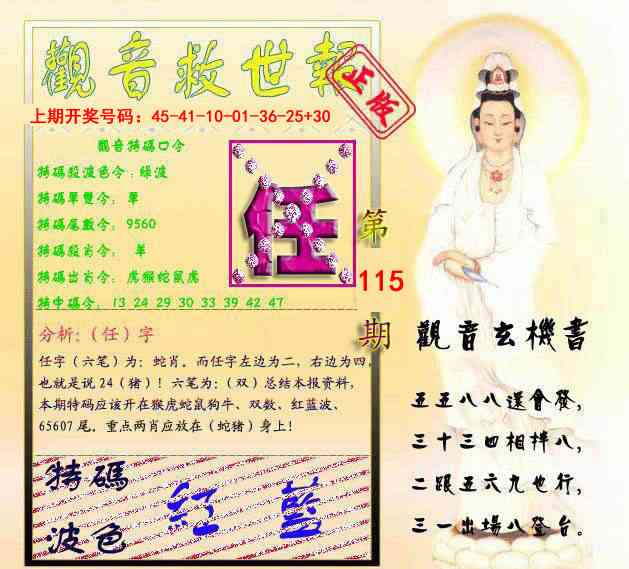 觀音救世報
正版
上期开奖号码：45-41-10-01-36-25+30
觀音特碼口令
特碼殺波色令：綠波
特碼單雙令： 單
特碼尾數令： 9560
特碼殺肖令： 羊
特碼出肖令： 虎猴蛇鼠虎
特中碼令： 13 24 29 30 33 39 42 47
任
第
115
期
分析：（任）字
任字（六笔）为：蛇肖。而任字左边为二，右边为四，
也就是说 24（猪）！六笔为：（双）总结本报资料，
本期特码应该开在猴虎蛇鼠狗牛、双数、红蓝波、
65607 尾。重点两肖应放在（蛇猪）身上！
特碼
波色
红 蓝
觀音玄機書
五五八八還會發，
三十三四相拌八，
二跟五六九也行，
三一出場八登台。